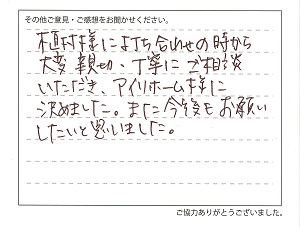 その他ご意見・ご感想をお聞かせください。
植村様に打ち合わせの時から
大変親切、丁寧にご相談
いただき、アイリホーム様に
決めました。また今後もお願い
したいと思いました。
ご協力ありがとうございました。